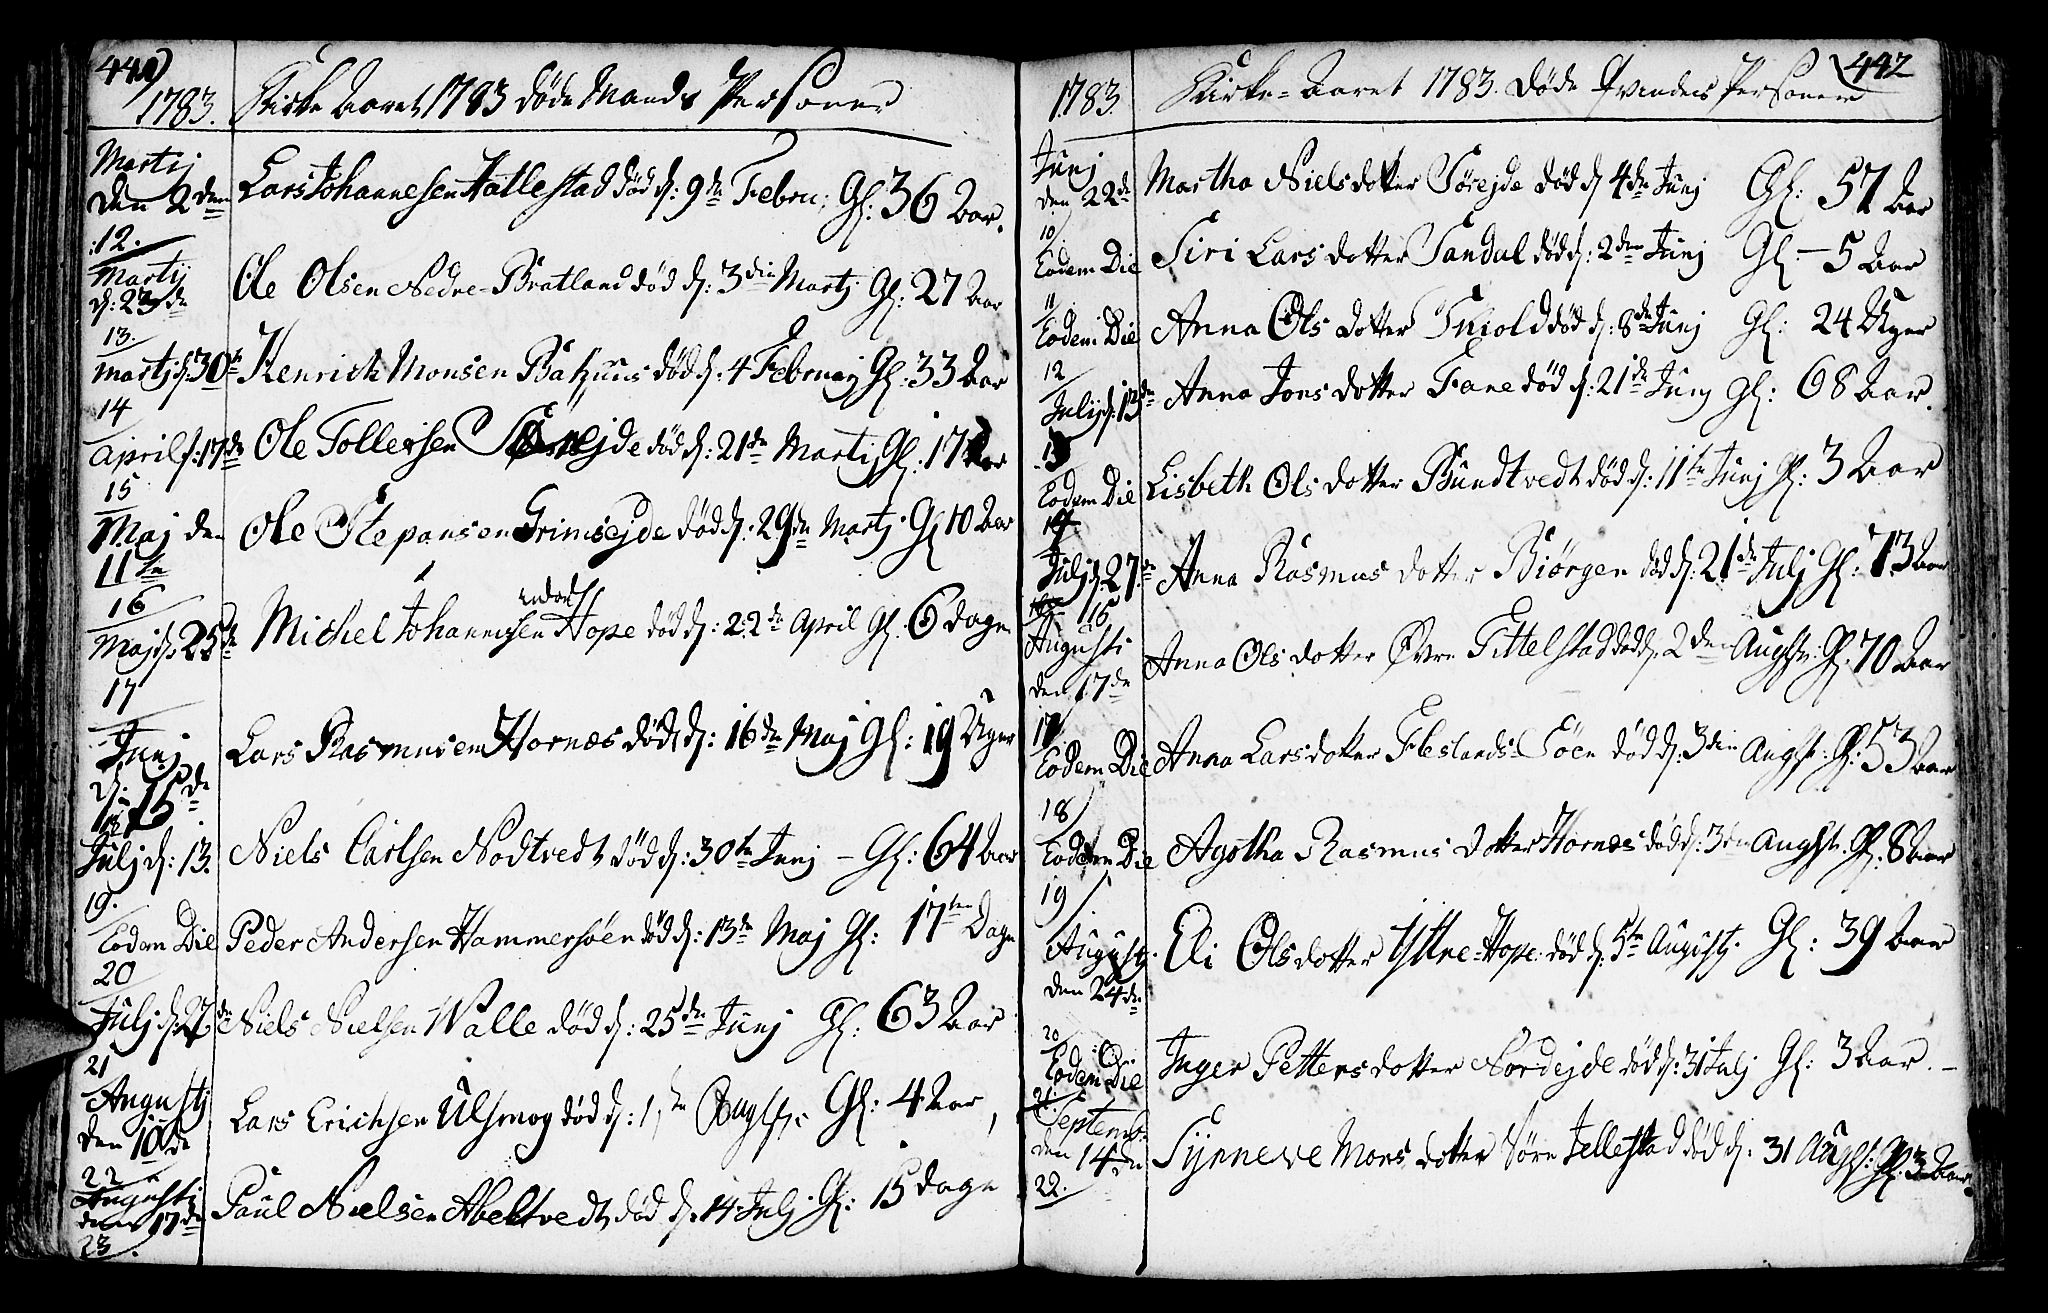 1783. Kirke Aaret 1783 døde Mands Personer
Martij
den 2den Lars Johannesen Hallestad død d: 9de Febru; Gl: 36 Aar.
12.
Martij
d: 23de Ole Olsen Nedre-Bratland død d: 3die Martj Gl: 27 Aar
13.
Martj d: 30te Henrich Monsen død d: 4 Februarj Gl: 33 Aar
14
April d: 17de Ole Tollefsen død d: 21de Martij Gl: 17 Aar
15
Maj den
11te Ole Stepansen Grimsejde død d: 29de Martj Gl 10 Aar
16
Majd: 25de Michel Johannesen Hope død d: 22de April Gl. 6 dage
17
Junj
d: 15de Lars Rasmusen Hornæs død d: 16de Maj Gl: 19 Uger
Julj d: 13. Niels Carlsen Nodtvedt død d: 30te Junj – Gl: 64 Aar
19.
Eodem Die Peder Andersen Hammersøen død d: 13de Maj Gl: 17ten Dage
20
Julj d: 27de Niels Nielsen Walle død d: 25de Junj Gl: 63 Aar
21
Augustj
den 10de Lars Erichsen Ulsmog død d: 1ste Augst: Gl: 4 Aar,
22
Augusti
den 17de Paul Nielsen Abeltvedt død d. 14 Julj Gl: 15 dage
23.
442
1783. Kirke-Aaret 1783. Døde Qvindes Personer
Junj
den 22de Martha Nielsdotter Sørejde død d 4de Junj Gl: 57 Aar
10
Eodem Die Siri Larsdotter Sandal død d: 2den Junj Gl – 5 Aar
11
Eodem Die Anna Olsdotter Skiold død d: 8de Junj Gl: 24 Uger
12
Julij d: 13de Anna Jonsdotter Fane død d: 21de Junj Gl: 68 Aar.
13
Eodem Die Lisbeth Olsdotter Bundtvedt død d: 11te Junj Gl: 3 Aar
14
Julj d: 27de Anna Rasmusdotter Biørgen død d: 21de Julj Gl: 73 Aar
16
Augusti
den 17de Anna Olsdotter Øvre Tittelstad død d. 2den Augst: Gl. 70 Aar
17
Eodem Die Anna Larsdotter Fleslands-Søen død d: 3die Augst: Gl: 53 Aar
18
Eodem Die Agotha Rasmusdotter Hornæs død d: 3die Augst. Gl. 8 Aar
19
Augustj.
den 24de Eli Olsdotter Yttre-Hope: død d: 5te Augustj Gl: 39 Aar
20
Eodem Die Inger Pettersdotter Nordejde død d: 31 Julj Gl: 3 Aar. –
21.
Septemb.
den 14de Synneve Monsdotter Søre Jellestad død d: 31 Augst: Gl. 3 Aar.
22.